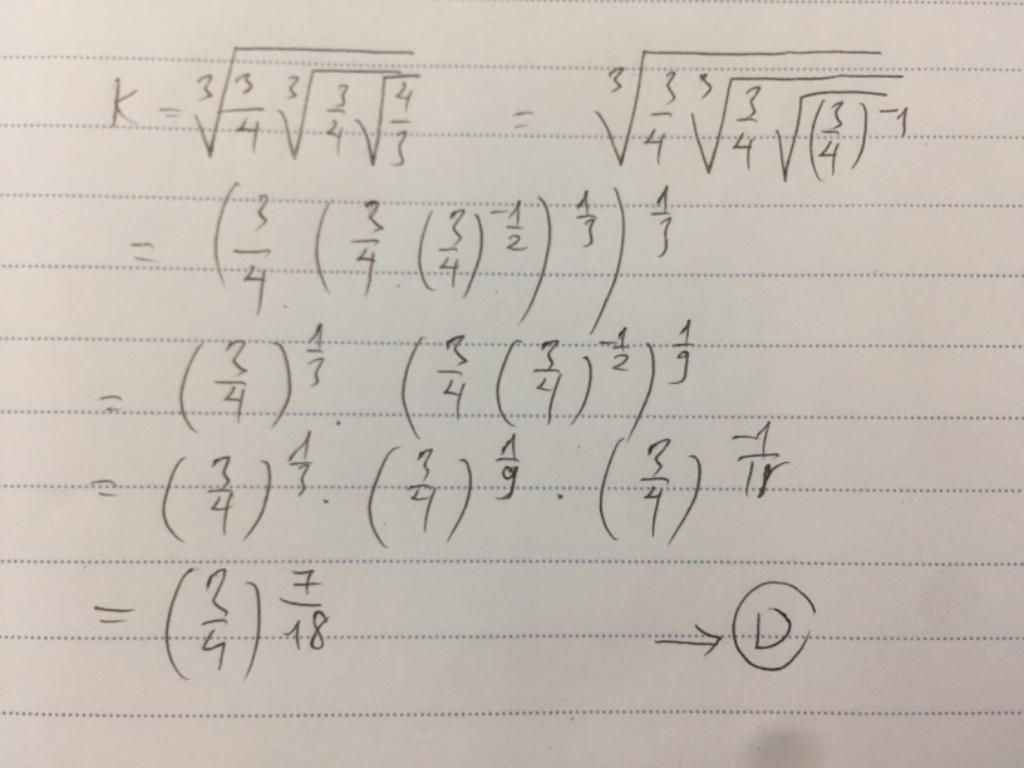 K = ∛(3/4 ∛(3/4 √(4/3))) = ∛(3/4 ∛(3/4 √((3/4)^-1)))
= (3/4 (3/4 . (3/4)^(-1/2))^(1/3))^(1/3)
= (3/4)^(1/3) . (3/4 (3/4)^(-1/2))^(1/9)
= (3/4)^(1/3) . (3/4)^(1/9) . (3/4)^(-1/18)
= (3/4)^(7/18) → D